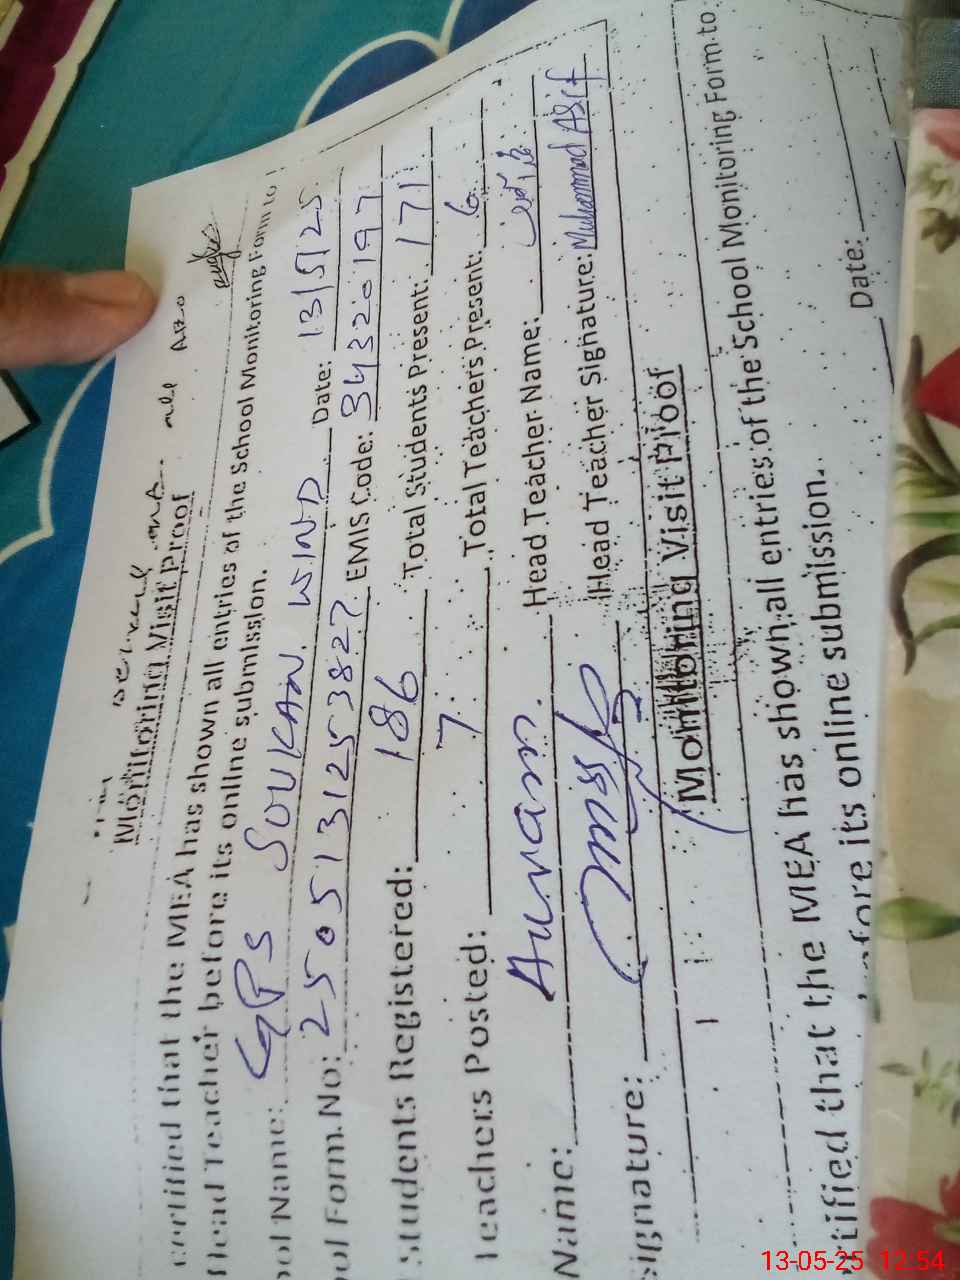 Monitoring Visit Proof
certified that the MEA has shown all entries of the School Monitoring Form to
Head Teacher before its online submission.
ool Name: GPS SOUKAN. WIND Date: 13/5/25
ool Form No: 2505131253827 EMIS Code: 34320197
Students Registered: 186 Total Students Present: 171
Teachers Posted: 7 Total Teachers Present: 6
Name: Head Teacher Name:
signature: Head Teacher Signature: Muhammad Asif
Monitoring Visit Proof
rtified that the MEA has shown all entries of the School Monitoring Form to
efore its online submission.
Date:
13-05-25 12:54